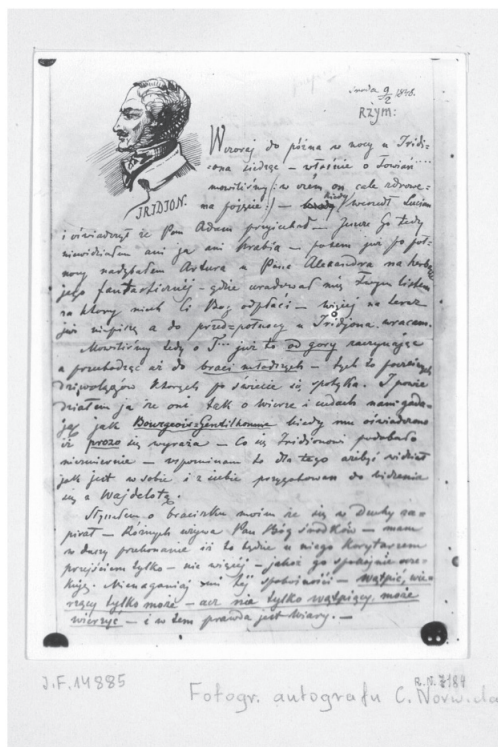 środa 9/2 1848.
Rzym:
IRIDJON.
Wczoraj do późna w nocy u Iridi-
ona siedząc – właśnie o Towiań...
mówiliśmy /: w czem on całe zdrowe
ma pojęcie :/ – kiedy wszedł Lucjan
i oświadczył że Pan Adam przyjechał – Jeszcze Go tedy
niewidziałem ani ja ani hrabia – potem już po pół-
nocy nadybałem Artura u Pana Alexandra na
jego fantasticznéj – gdzie uradował mię Twym listem
za który niech Ci Bóg odpłaci – więcej na teraz
już niepiszę a do przed-północy u Iridjona wracam.
Mówiliśmy tedy o T... już to od góry zaczynając
a przechodząc aż do braci młodszych – tych to pociesznych
dziwolągów których po świecie się spotyka. I powie
działem ja że oni tak o wierze i cudach nam gada-
ją jak Bourgeois-Gentilhomme kiedy mu oświadczono
iż prozą się wyraża – Co się Iridionowi podobało
niezmiernie – wspominam to dla tego ażebyś widział
jak jest w sobie i z siebie przygotowan do widzenia
się z Wajdelotą.
Słyszałem o braciszku moim że się w Duchy za-
pisał – Różnych używa Pan Bóg środków – mam
w duszy przekonanie iż to będzie u niego korytarzem
przejściem tylko – nie więcej – jakoż go spokojnie ocze-
kuję. Nienaganiaj mi téj spokojności – wątpić, wie-
rzący tylko może – acz nie tylko wątpiący może
wierzyć – i w tem prawda jest Wiary. –
J.F. 14885
R.N. 7184
Fotogr. autografu C. Norwida